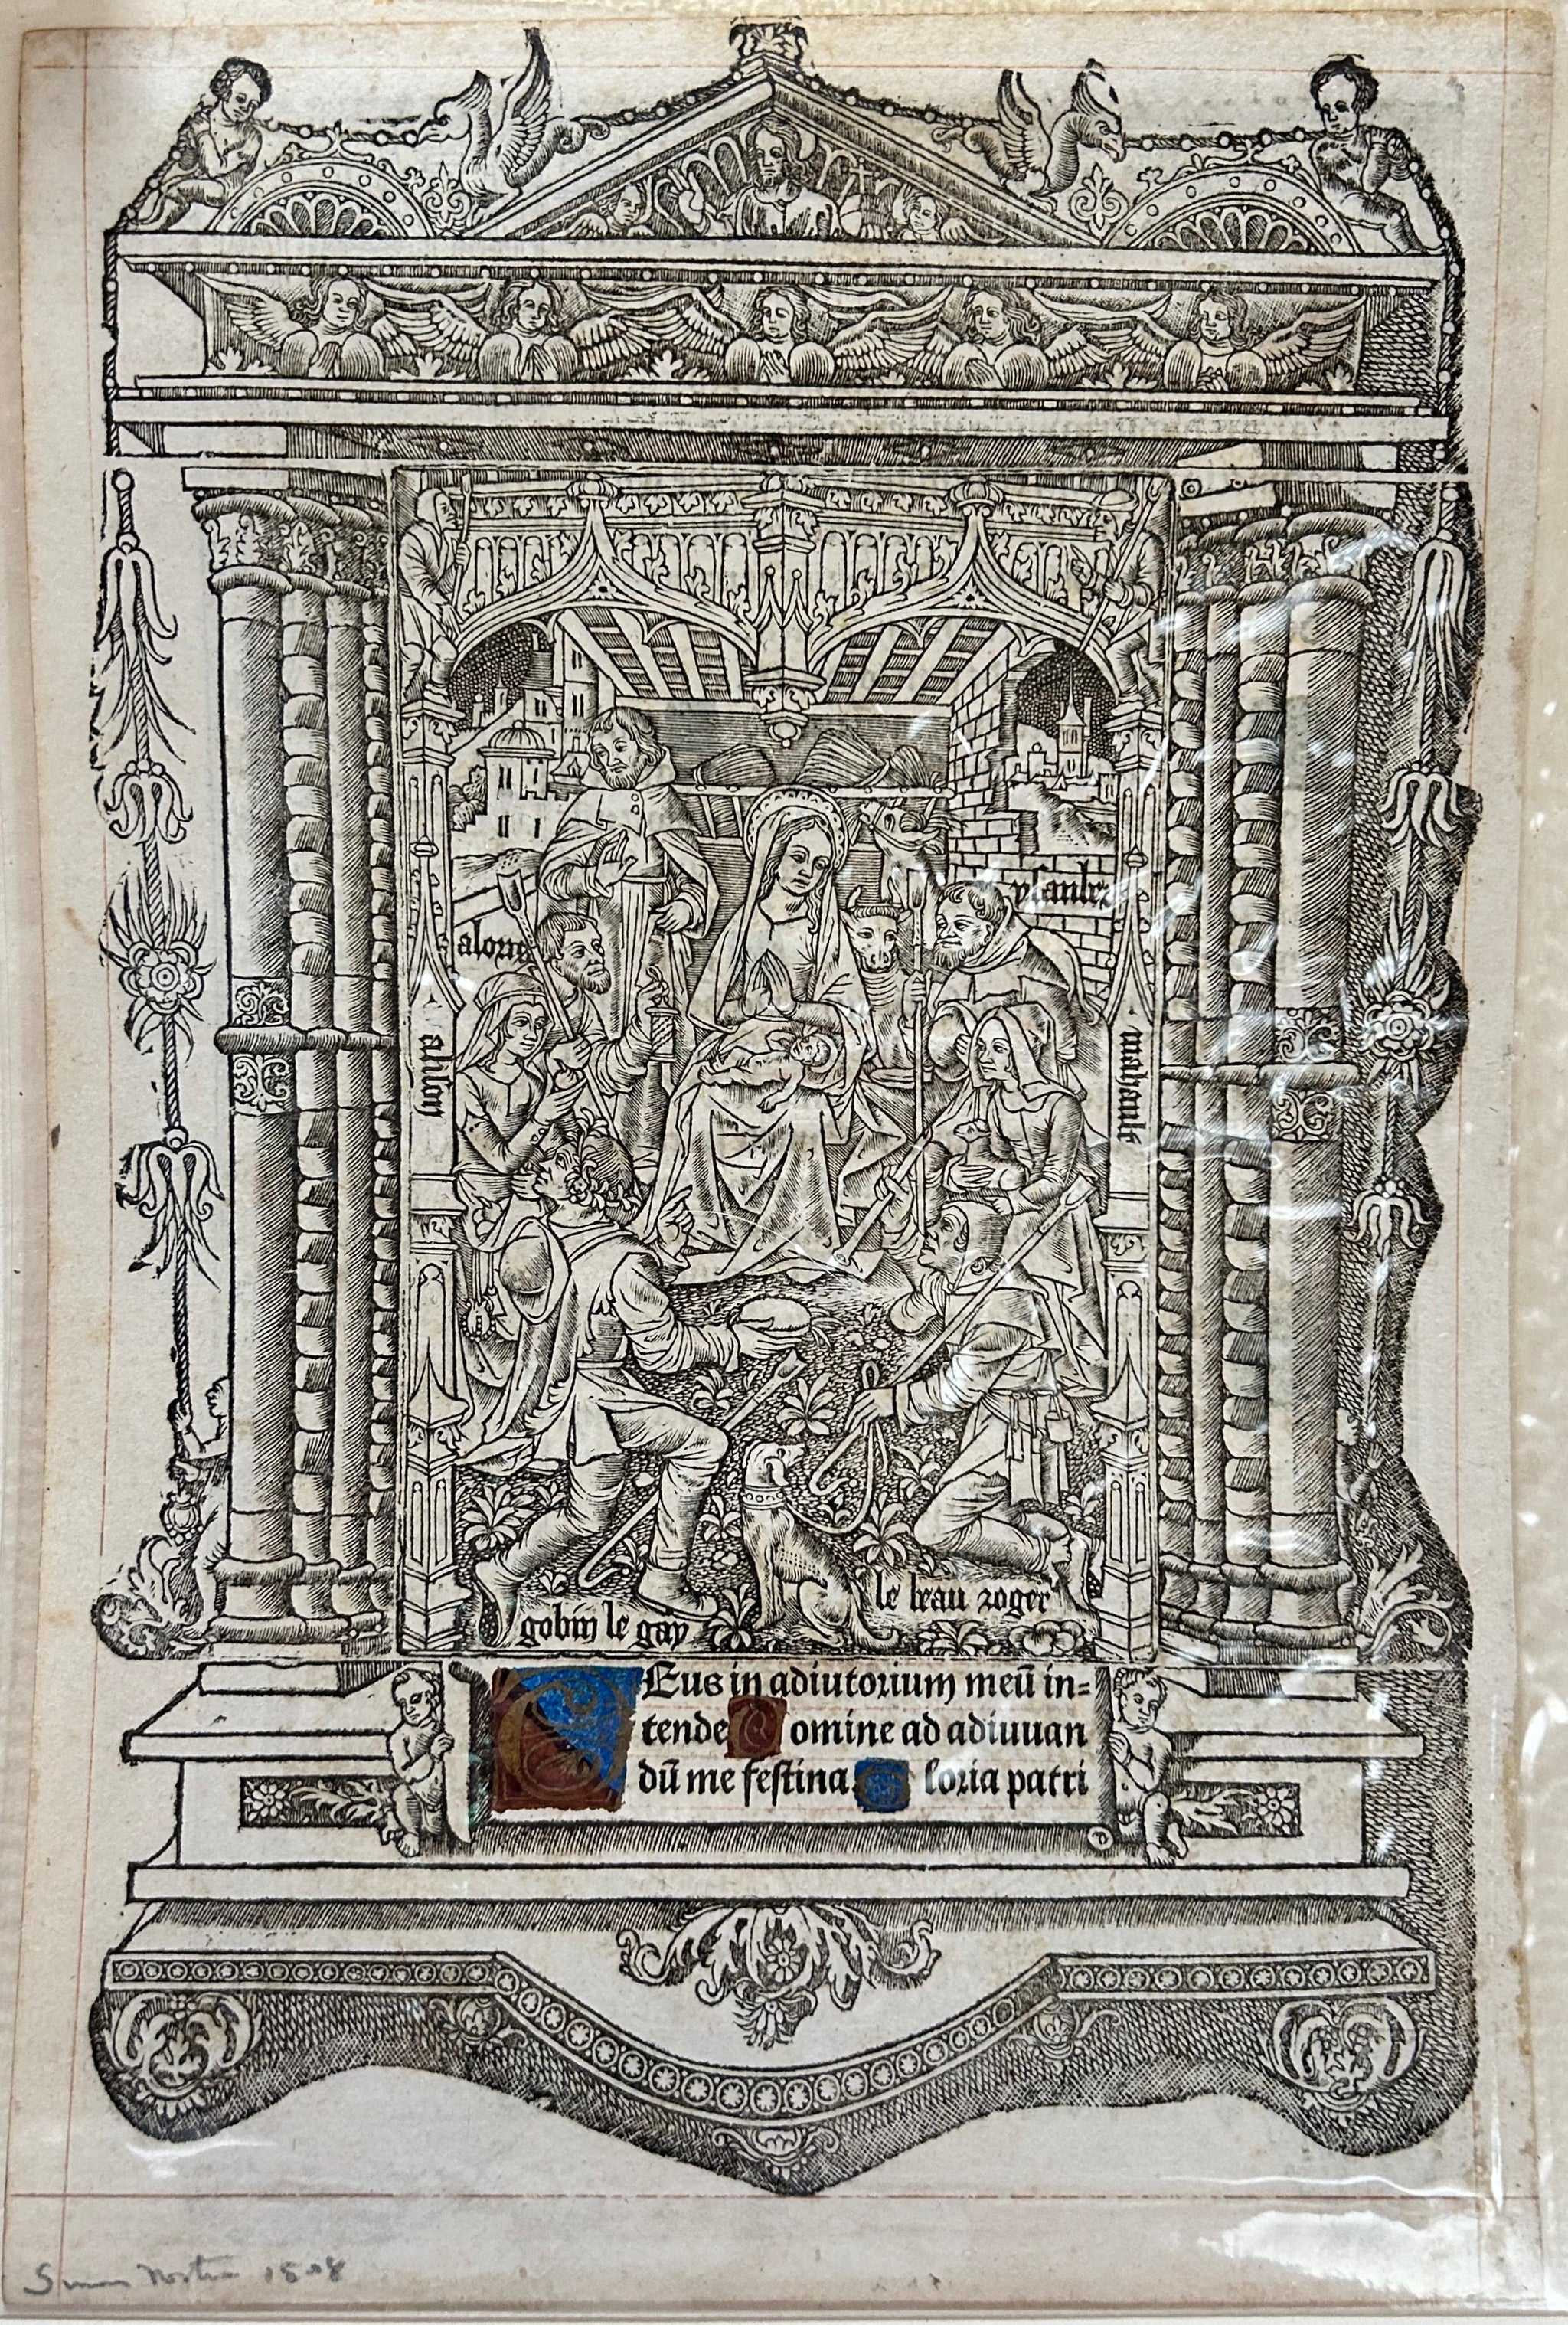 ysanber
alory
alison
mahault
gobin le gay
le beau roger
Deus in adiutorium meū in=
tende Domine ad adiuuan
dū me festina. Gloria patri
1508